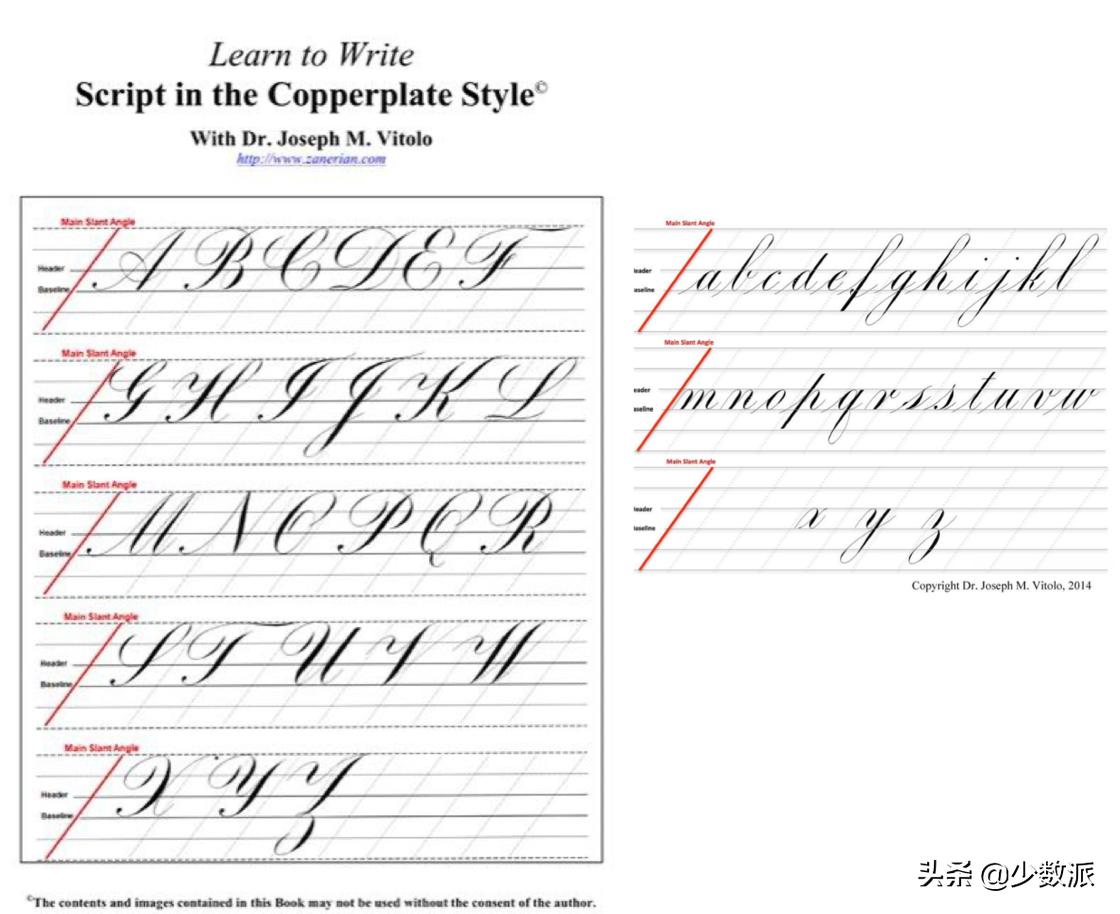 Learn to Write
Script in the Copperplate Style©
With Dr. Joseph M. Vitolo
http://www.zanerian.com
Main Slant Angle
A B C D E F
Header
Baseline
Main Slant Angle
G H I J K L
Header
Baseline
Main Slant Angle
M N O P Q R
Header
Baseline
Main Slant Angle
S T U V W
Header
Baseline
Main Slant Angle
X Y Z
Header
Baseline
©The contents and images contained in this Book may not be used without the consent of the author.
Main Slant Angle
a b c d e f g h i j k l
eader
aseline
Main Slant Angle
m n o p q r s s t u v w
eader
aseline
Main Slant Angle
x y z
eader
aseline
Copyright Dr. Joseph M. Vitolo, 2014
头条 @少数派